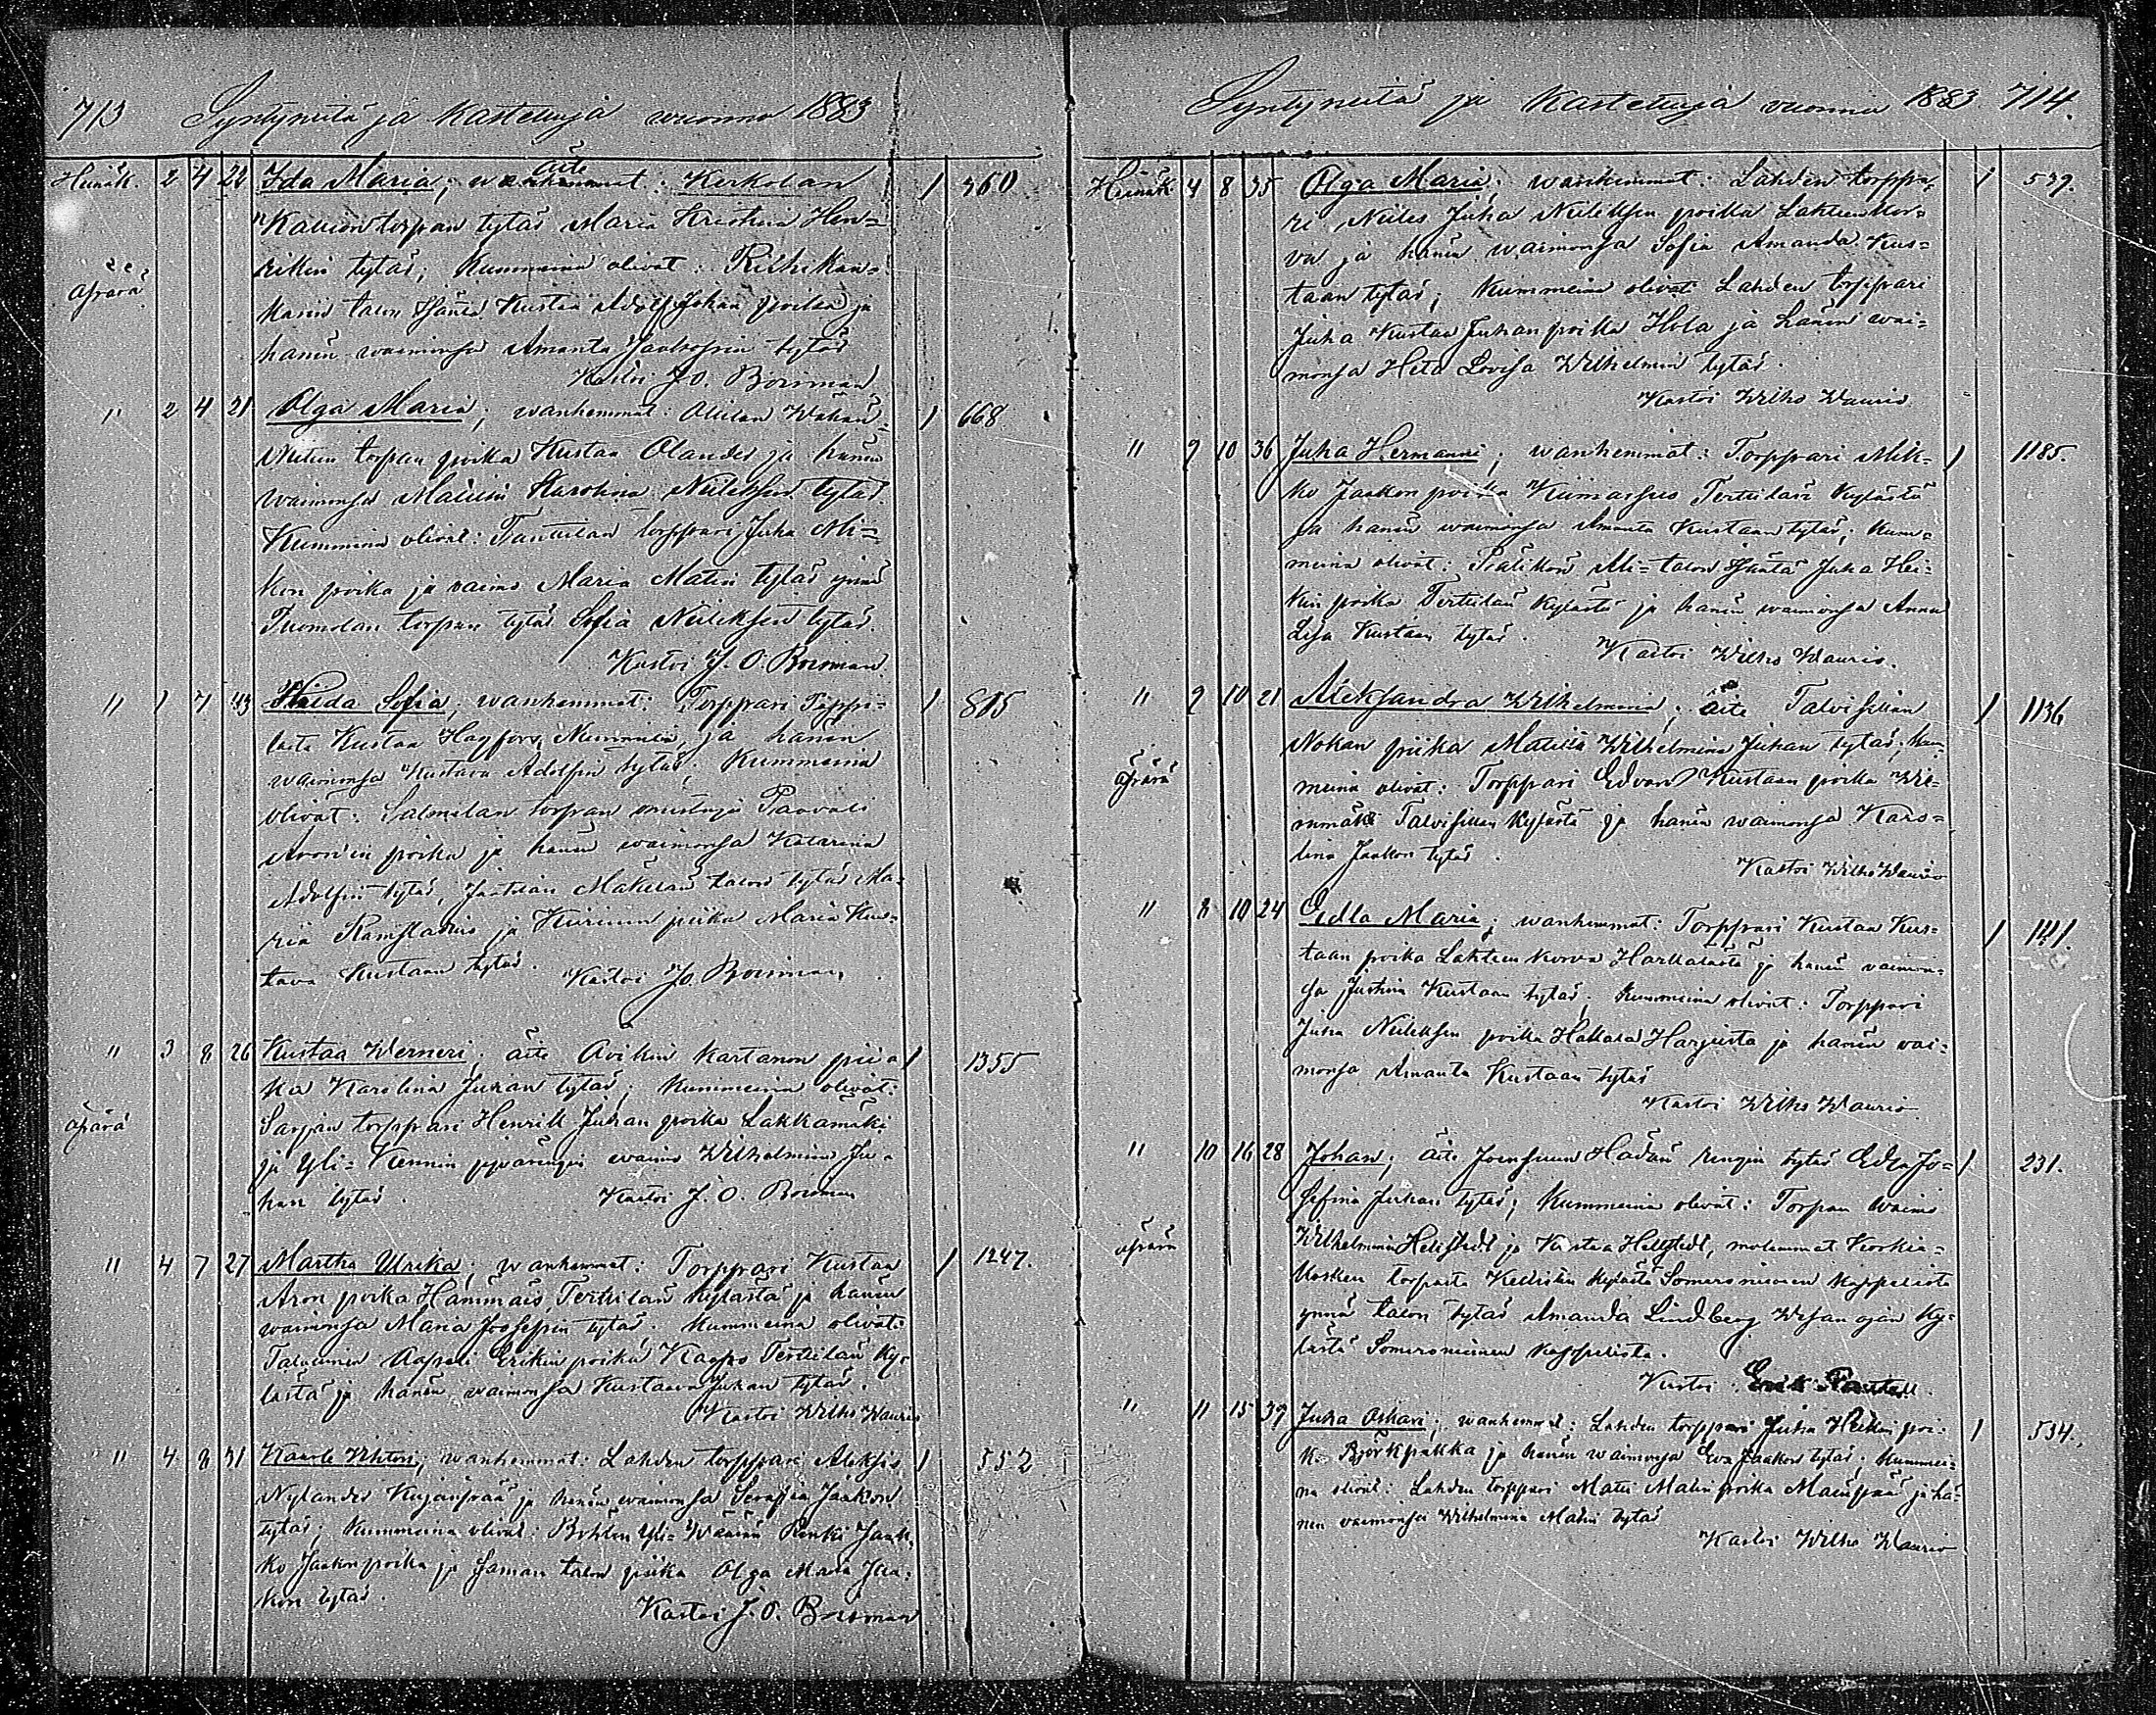 713 Syntyneitä ja Kastettuja vuonna 1883
Heinäk. 2 4 22 Ida Maria; äite : Kerkolan 1 460
Kallion torpan tytär Maria Kristina Hen=
rikin tytär; Kummeina olivat:
äpärä
talon Isäntä Kustaa Adolf Johan poika ja
hänen waimonsa Amanta tytär
Kastoi J. O. Boisman
" 2 4 21 Olga Maria; wanhemmat: 1 668.
torpan poika Kustaa Olander ja hänen
waimonsa Karolina Niileksen tytär
Kummina olivat: Torppari Juha Mi=
kon poika ja vaimo Maria Matin tytär ynnä
Tuomolan torpan tytär Sofia Niileksen tytär.
Kastoi J. O. Boisman.
" 1 7 43 Sofia; wanhemmat: Torppari 1 815
Kustaa Hagfors, ja hänen
waimonsa Kustava Adolfin tytär; Kummeina
olivat: Salmelan torpan Paavali
Aron'in poika ja hänen waimonsa Katarina
Adolfin tytär, Jaatilan Mäkelän talon tytär Ma=
ria ja piika Maria Kus=
tava Kustaan tytär. Kastoi J. O. Boisman
" 3 8 26 Kustaa Werneri; äite Åvikin kartanon pii= 1 1355
ka Karolina Juhan tytär; Kummeina olivat:
äpärä
Sarjan torppari Henrik Juhan poika Lakkamäki
ja Yli= waimo Wilhelmina Ju=
han tytär. Kastoi J. O. Boisman
" 4 7 27 Martha Ulrika; wanhemmat: Torppari Kustaa 1 1247.
Aron poika Hammais Terttilän kylästä ja hänen
waimonsa Maria Joosefin tytär. Kummeina olivat:
Erikin poika Terttilän ky=
lästä ja hänen waimonsa Kustaava Juhan tytär.
Kastoi Wilho Waurio
" 4 8 31 Kaarle Wihtori; wanhemmat: Lahden torppari Aleksis 1 552
Nylander Kujanpää ja hänen waimonsa Serafia Jaakon
tytär; Kummeina olivat: Renki Jaak=
ko Jaakon poika ja saman talon piika Olga Maria Jaa=
kon tytär.
Kastoi J. O. Boisman
Syntyneitä ja Kastettuja vuonna 1883 714.
Heinäk 4 8 35 Olga Maria; wanhemmat: Lahden torppa= 1 539.
ri Niiles Juha Niileksen poika Lahteenkor=
va ja hänen waimonsa Sofia Amanda Kus=
taan tytär; Kummeina olivat Lahden torppari
Juha Kustaa Juhan poika Hola ja hänen wai=
monsa Heta Lovisa Wilhelmin tytär.
Kastoi Wilho Waurio.
" 9 10 36 Juha Hermanni; wanhemmat: Torppari Mik= 1 1185.
ko Jaakon poika Terttilän kylästä
ja hänen waimonsa Amanta Kustaan tytär; Kum=
meina olivat: Isäntä Juha Hei=
kin poika Terttilän kylästä ja hänen waimonsa Anna
Lisa Kustaan tytär.
Kastoi Wilho Waurio.
" 9 10 21 Aleksandra Wilhelmina; äite Talvisillan 1 1136
Nokan piika Matilta Wilhelmina Juhan tytär; kum=
äpärä
meina olivat: Torppari Edvard Kustaan poika
Talvisillan kylästä ja hänen waimonsa Karo=
lina Jaakon tytär.
Kastoi Wilho Waurio
" 8 10 24 Edla Maria; wanhemmat: Torppari Kustaa Kus= 1 141.
taan poika Lahteenkorva ja hänen vaimon=
sa Justina Kustaan tytär; Kummeina olivat: Torppari
Juha Niileksen poika Hakkala Harjusta ja hänen vai=
monsa Amanta Kustaan tytär
Kastoi Wilho Waurio.
" 10 16 28 Johan; äite Joensuun tytär Edla Jo= 1 231.
sefina Juhan tytär; Kummeina olivat: Torpan waimo
äpärä
Wilhelmina Hellstedt ja Kustaa Hellstedt, molemmat
kosken torpasta kylästä Someroniemen kappelista
ynnä talon tytär Amanda Lindberg ojan ky=
lästä Someroniemen kappelista.
Kastoi
" 11 15 39 Juha Oskari; wanhemmat: Lahden torppari Juha Heikin poi= 1 534.
ka Björkpakka ja hänen waimonsa Eva Jaakon tytär; Kummei=
na olivat: Lahden torppari Matti Matin poika ja hä=
nen vaimonsa Wilhelmina Matin tytär
Kastoi Wilho Waurio